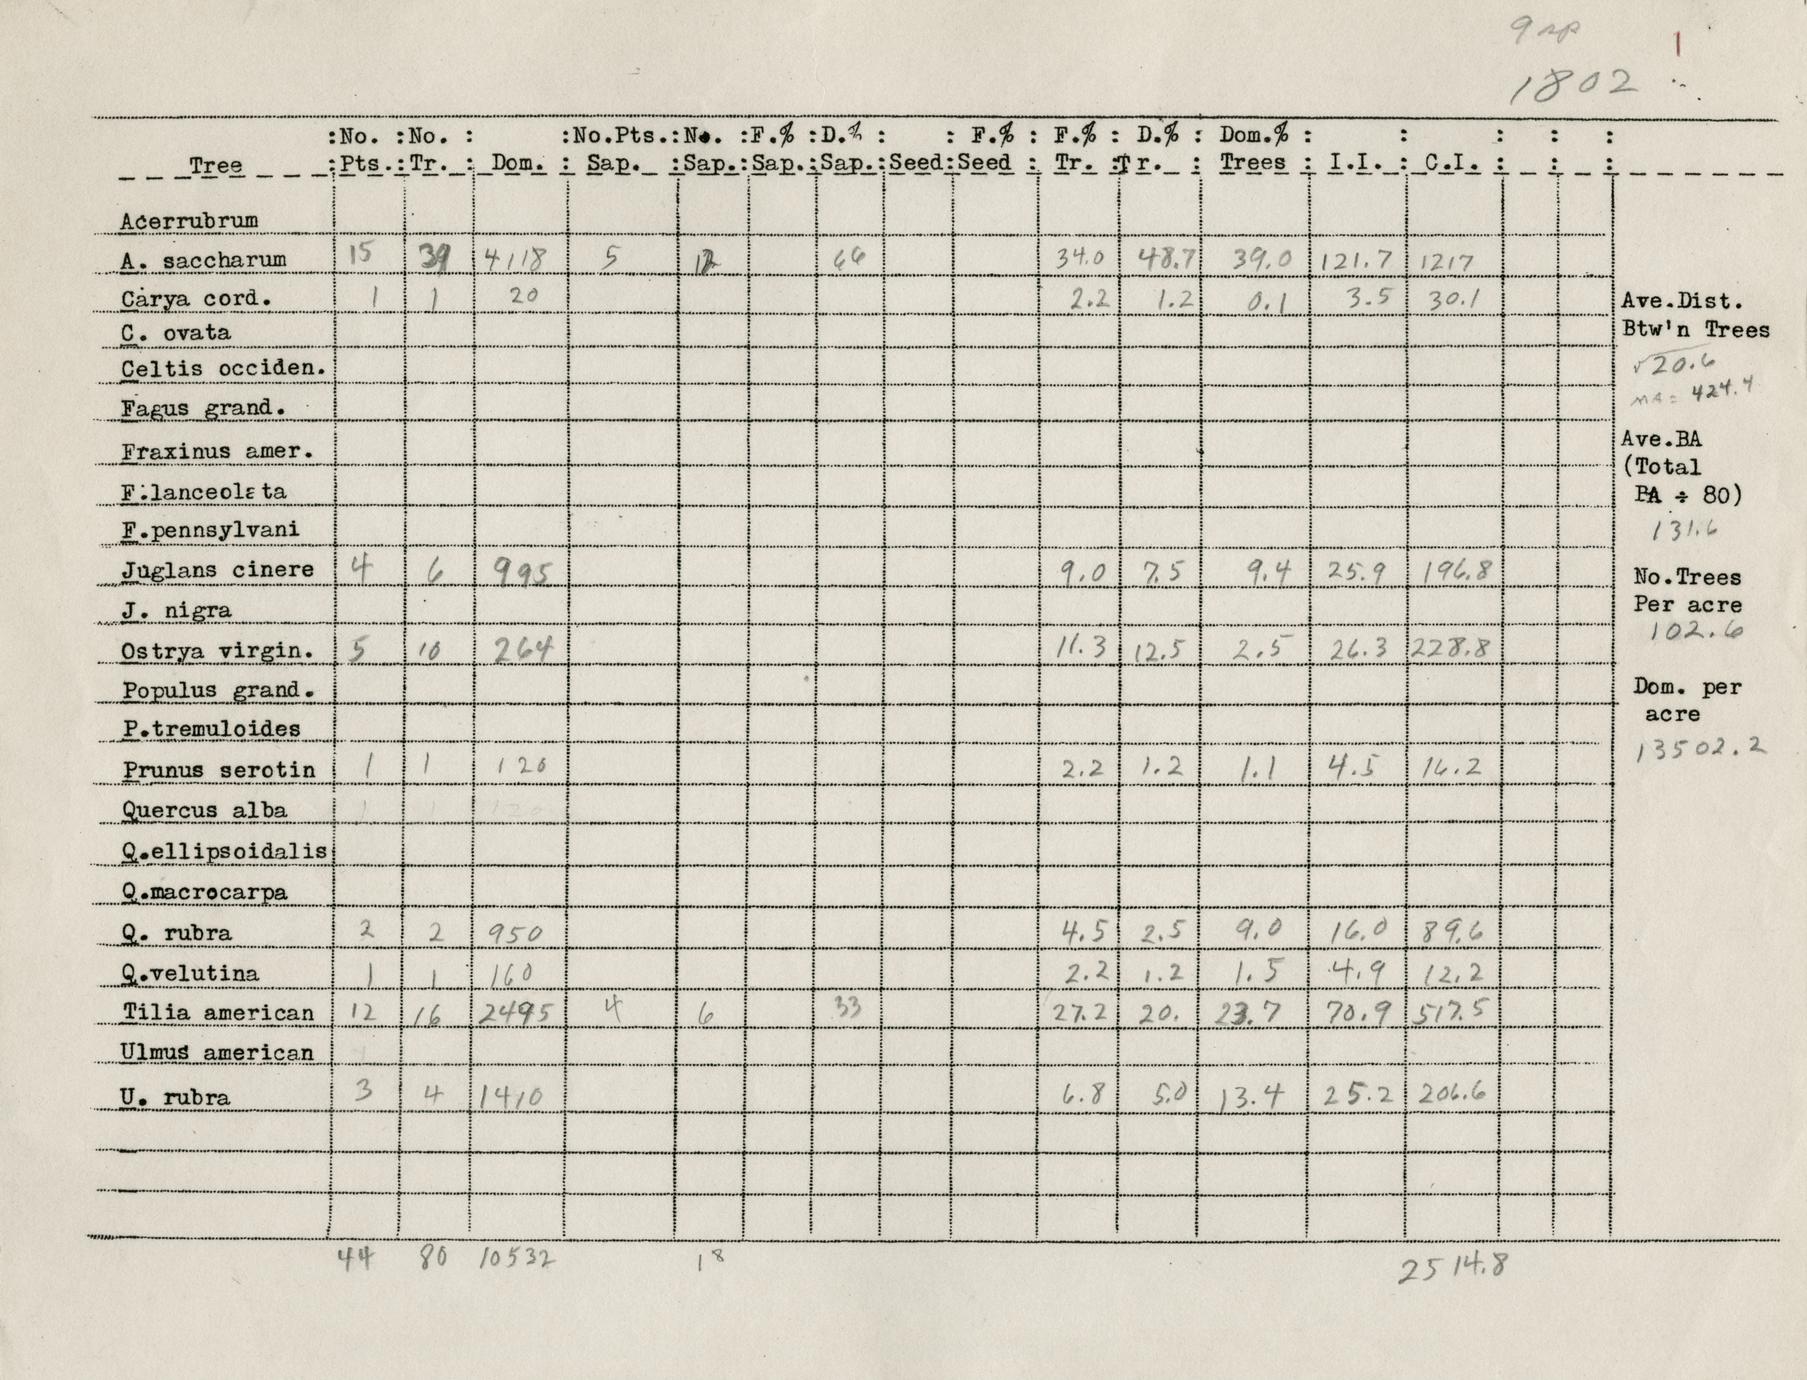 9 sp
1
1802
:No. :No. : :No.Pts.:No. :F.% :D.% : : F.% : F.% : D.% : Dom.% : : : : :
Tree :Pts.:Tr. : Dom. : Sap. :Sap.:Sap.:Sap.:Seed:Seed : Tr. :Tr. : Trees : I.I. : C.I. : : :
Acerrubrum
A. saccharum 15 39 4118 5 12 66 34.0 48.7 39.0 121.7 1217
Carya cord. 1 1 20 2.2 1.2 0.1 3.5 30.1
Ave.Dist.
C. ovata
Btw'n Trees
Celtis occiden.
√20.6
MA = 424.4
Fagus grand.
Ave.BA
Fraxinus amer.
(Total
F.lanceolata
BA ÷ 80)
F.pennsylvani
131.6
Juglans cinere 4 6 995 9.0 7.5 9.4 25.9 196.8
No.Trees
J. nigra
Per acre
102.6
Ostrya virgin. 5 10 264 11.3 12.5 2.5 26.3 228.8
Populus grand.
Dom. per
acre
P.tremuloides
13502.2
Prunus serotin 1 1 120 2.2 1.2 1.1 4.5 16.2
Quercus alba 1 1 120
Q.ellipsoidalis
Q.macrocarpa
Q. rubra 2 2 950 4.5 2.5 9.0 16.0 89.6
Q.velutina 1 1 160 2.2 1.2 1.5 4.9 12.2
Tilia american 12 16 2495 4 6 33 27.2 20. 23.7 70.9 517.5
Ulmus american
U. rubra 3 4 1410 6.8 5.0 13.4 25.2 206.6
44 80 10532 18 2514.8